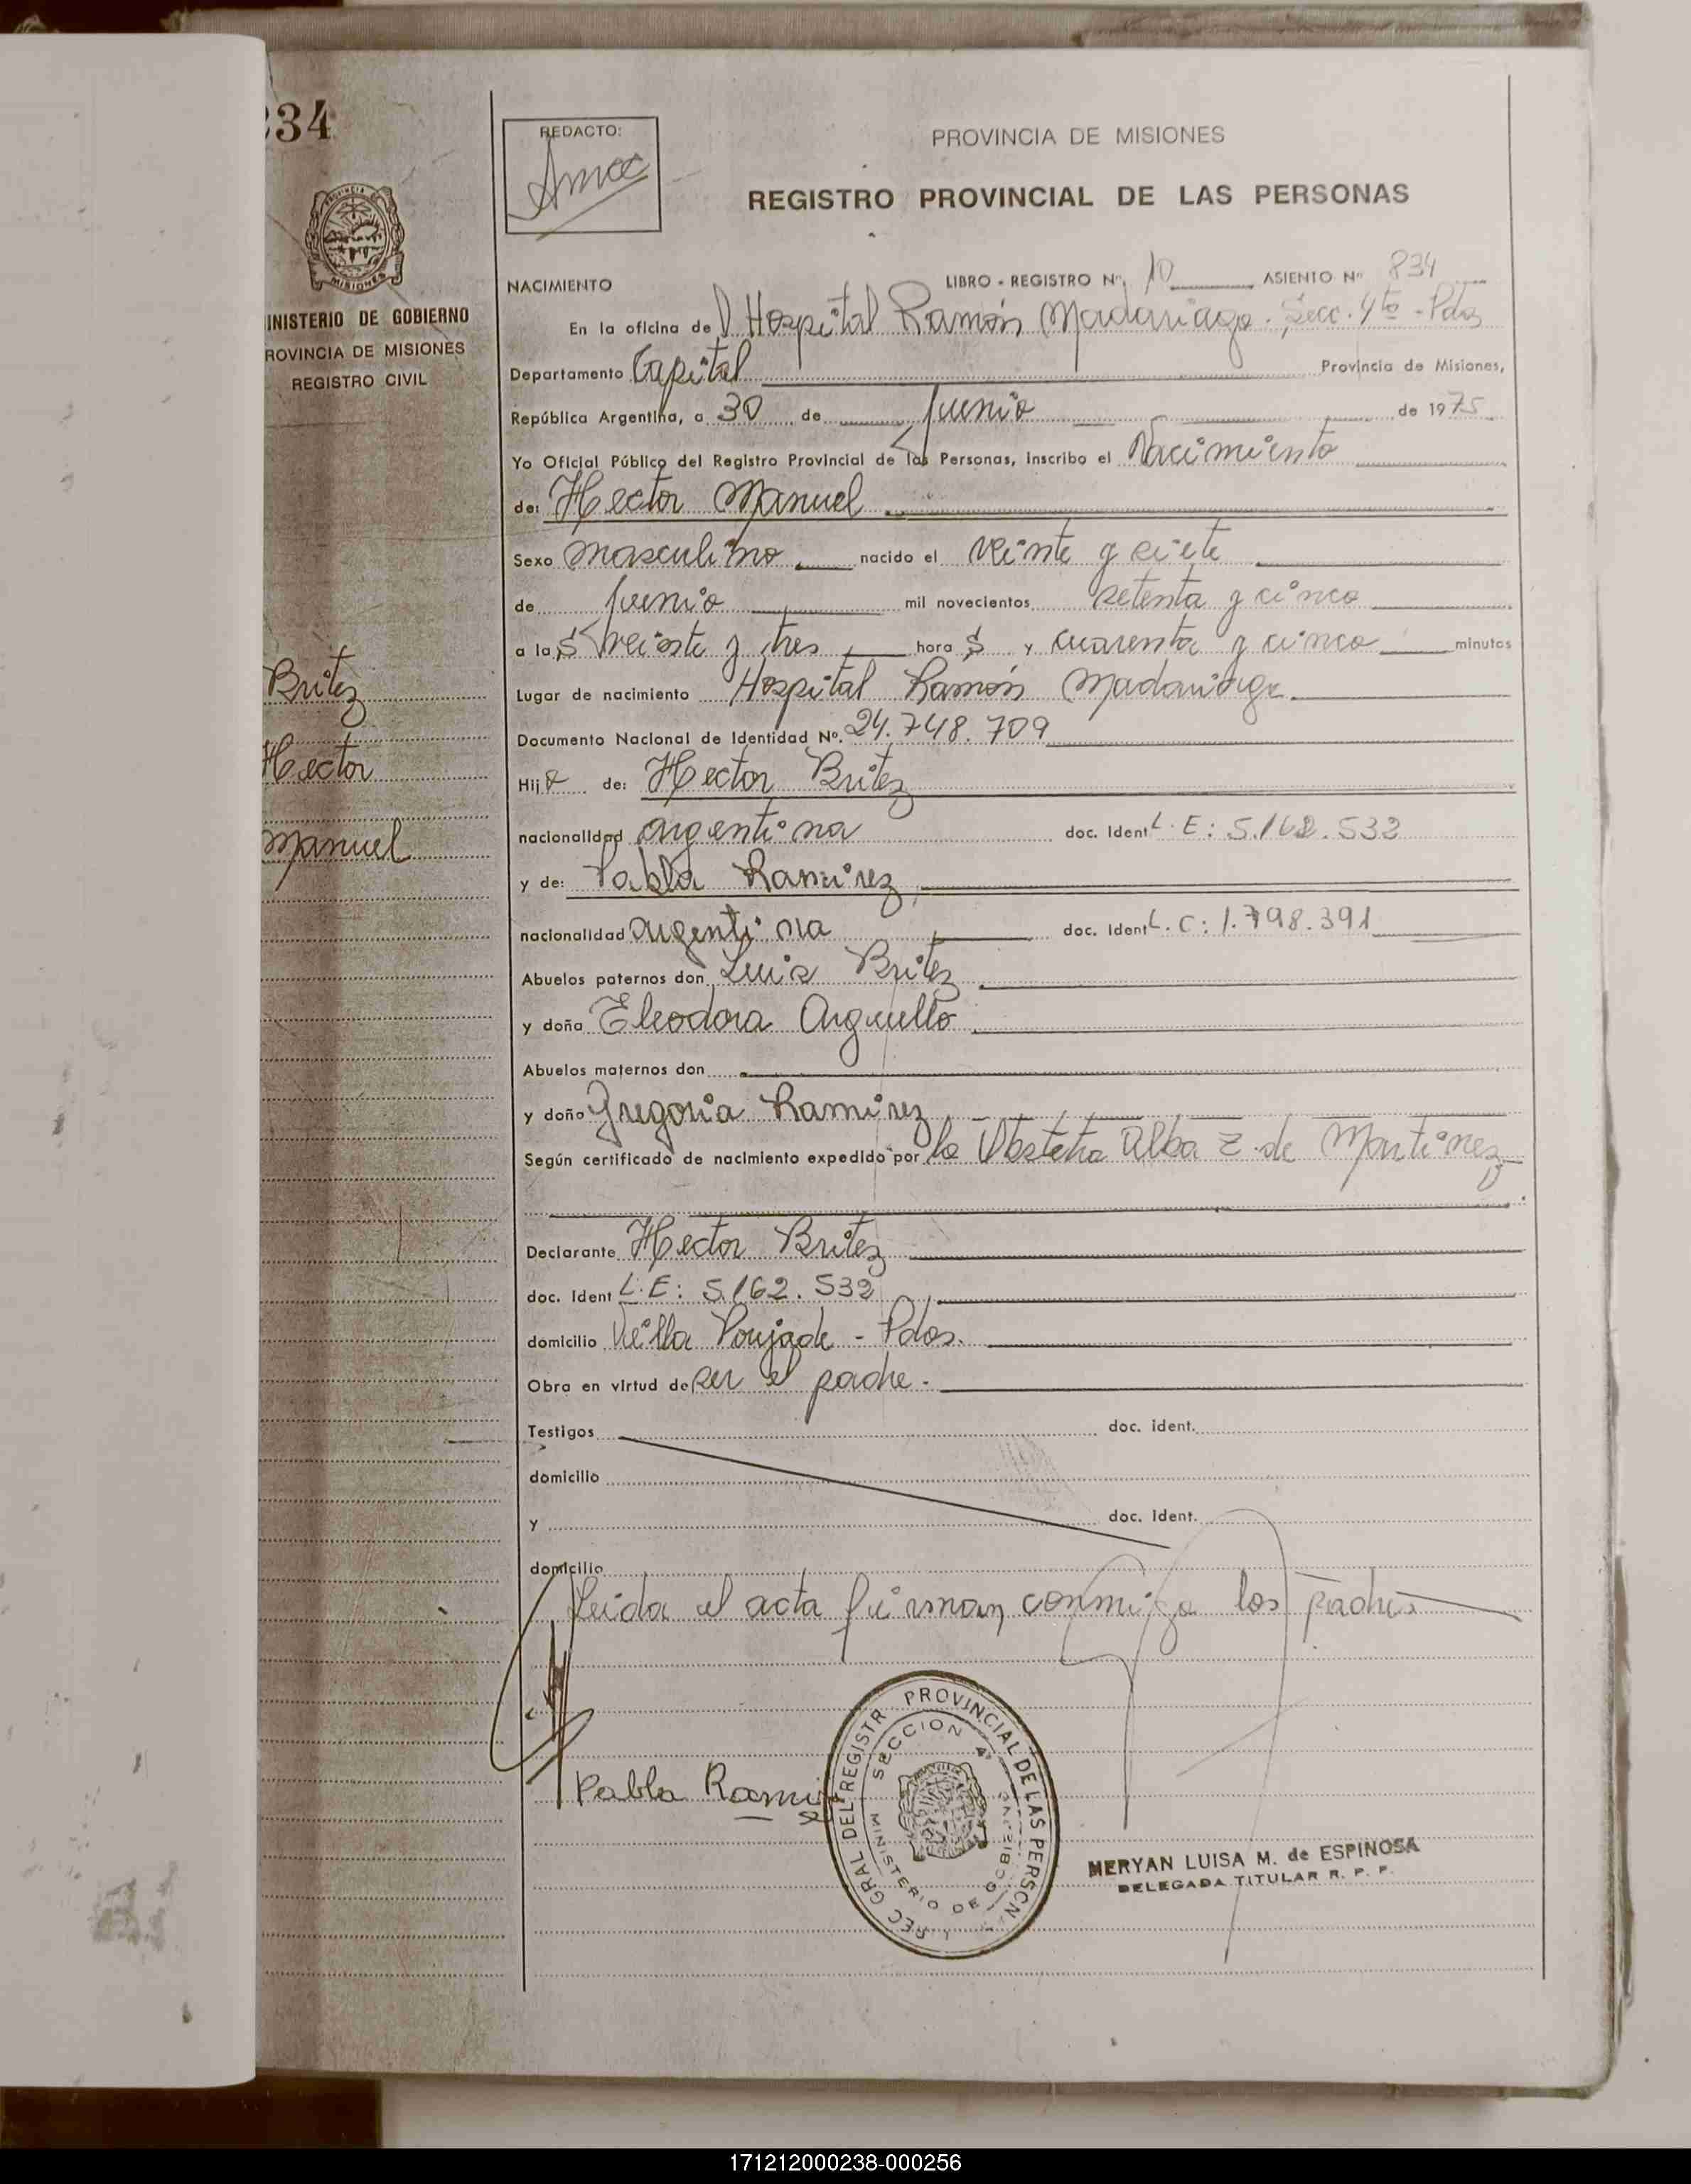 234
MISIONES
MINISTERIO DE GOBIERNO
PROVINCIA DE MISIONES
REGISTRO CIVIL
Britez
Hector
Manuel
REDACTO:
PROVINCIA DE MISIONES
REGISTRO PROVINCIAL DE LAS PERSONAS
NACIMIENTO LIBRO - REGISTRO Nº 10 ASIENTO Nº 834
En la oficina del Hospital Ramón Madariaga. Secc. 4ta - Pdas
Departamento Capital Provincia de Misiones,
República Argentina, a 30 de junio de 1975
Yo Oficial Público del Registro Provincial de las Personas, inscribo el Nacimiento
de: Hector Manuel
Sexo masculino nacido el veinte y siete
de junio mil novecientos setenta y cinco
a las veinte y tres horas y cuarenta y cinco minutos
Lugar de nacimiento Hospital Ramón Madariaga.
Documento Nacional de Identidad Nº. 24.748.709
Hijo de: Hector Britez
nacionalidad argentina doc. Ident L.E: 5.162.532
y de: Pabla Ramirez
nacionalidad argentina doc. Ident L.C: 1.798.391
Abuelos paternos don Luis Britez
y doña Eleodora Arguello
Abuelos maternos don
y doña Gregoria Ramirez
Según certificado de nacimiento expedido por la Obstetra Alba Z. de Martinez
Declarante Hector Britez
doc. Ident L.E: 5.162.532
domicilio Villa Poujade - Pdas.
Obra en virtud de ser el padre.
Testigos doc. ident.
domicilio
y doc. Ident.
domicilio
Leida el acta firman conmigo los padres
Pabla Ramirez
SEC GRAL DEL REGISTR PROVINCIAL DE LAS PERSON
SECCION 4ª
MINISTERIO DE GOBIERNO
MERYAN LUISA M. de ESPINOSA
DELEGADA TITULAR R. P. P.
171212000238-000256